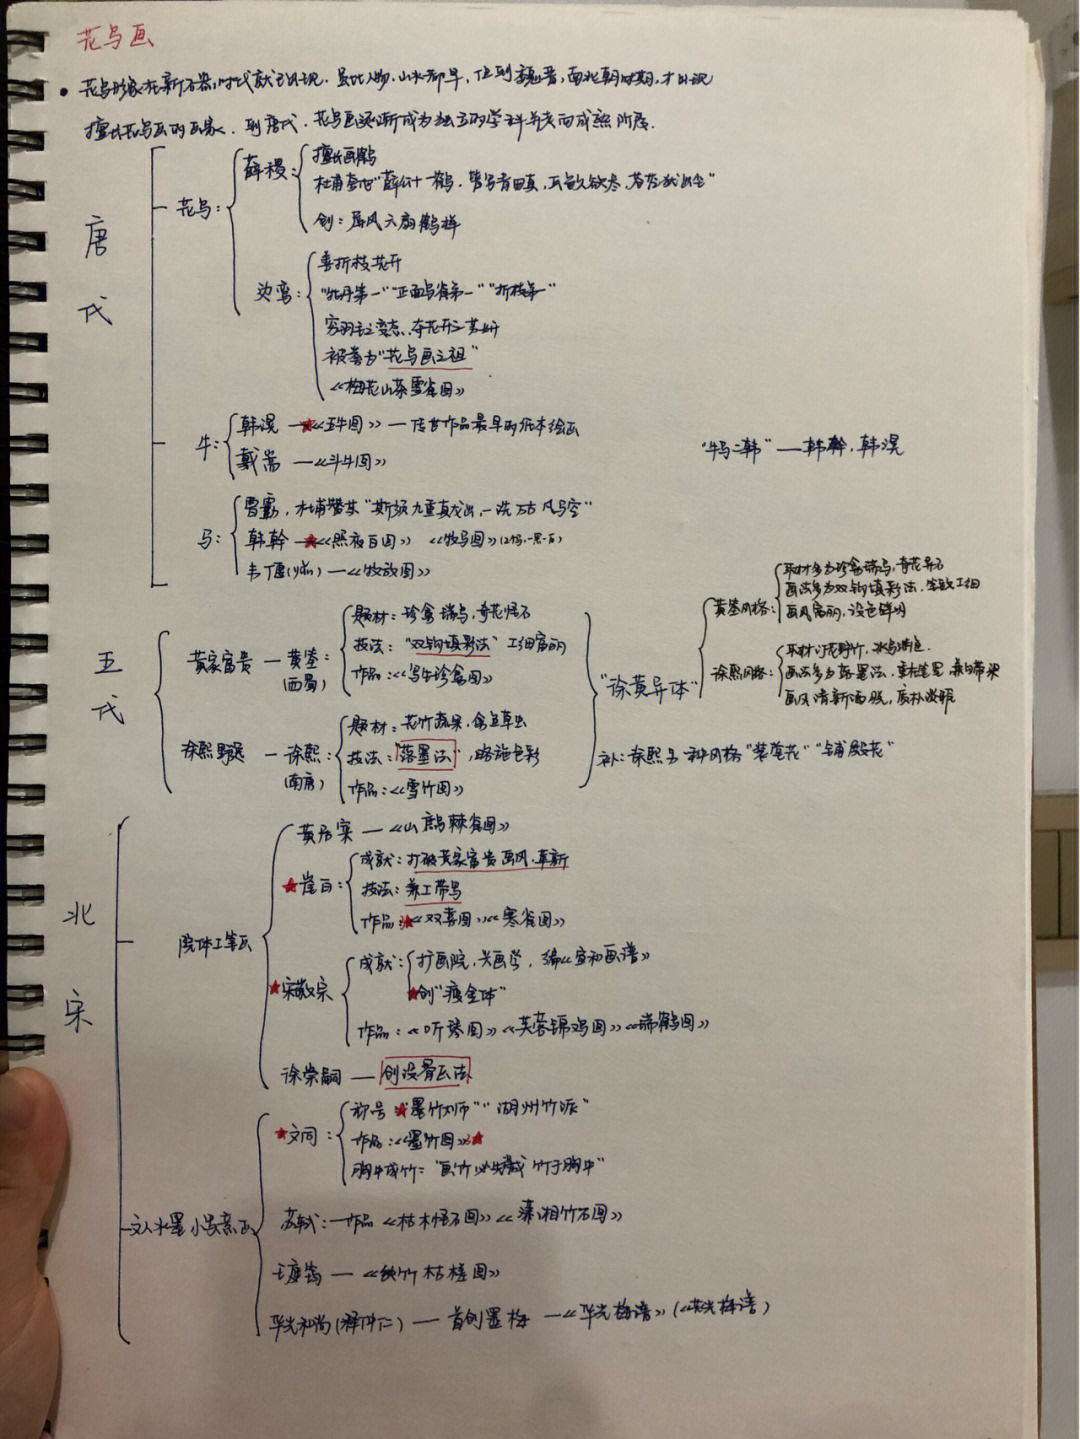 花鸟画
• 花鸟形象在新石器时代就已出现. 虽比人物. 山水都早, 但到魏晋, 南北朝时期, 才出现
擅长花鸟画的画家. 到唐代, 花鸟画逐渐成为独立的学科并走向成熟阶段.
唐代
花鸟:
薛稷:
擅长画鹤
杜甫奎他"薛公十一鹤, 皆写青田真, 画色久欲尽, 苍然犹出尘"
创: 屏风六扇鹤样
边鸾:
喜折枝花开
"牡丹第一""正面鸟雀第一""折枝第一"
穷羽毛之变态, 夺花开之芳妍
被誉为"花鸟画之祖"
《梅花山茶雪雀图》
牛:
韩滉 — ★《五牛图》— 传世作品最早的纸本绘画
戴嵩 —《斗牛图》
"牛马二韩" — 韩幹. 韩滉
马:
曹霸, 杜甫赞其"斯须九重真龙出, 一洗万古凡马空"
韩幹 — ★《照夜白图》 《牧马图》(2马, 一黑一白)
韦偃 —《牧放图》
五代
黄家富贵 — 黄筌: (西蜀)
题材: 珍禽瑞鸟, 奇花怪石
技法: "双钩填彩法" 工细富丽
作品:《写生珍禽图》
徐熙野逸 — 徐熙: (南唐)
题材: 花竹蔬果, 禽鱼草虫
技法: 落墨法, 略施色彩
作品:《雪竹图》
"徐黄异体"
黄筌风格:
取材多为珍禽瑞鸟, 奇花异石
画法多为双钩填彩法, 工细
画风富丽, 设色鲜明
徐熙风格:
取材汀花野竹, 水鸟渊鱼
画法多为落墨法, 重在笔墨
画风清新洒脱, 质朴
补: 徐熙另一种风格"装堂花""铺殿花"
北宋
院体工笔画
黄居寀 —《山鹧棘雀图》
★崔白:
成就: 打破黄家富贵画风, 革新
技法: 兼工带写
作品: ★《双喜图》《寒雀图》
★宋徽宗
成就: 扩画院, 兴画学, 编《宣和画谱》
★创"瘦金体"
作品:《听琴图》《芙蓉锦鸡图》《瑞鹤图》
徐崇嗣 — 创没骨画法
文人水墨小写意画
★文同:
称号 ★"墨竹大师""湖州竹派"
作品:《墨竹图》★
胸有成竹: "画竹必先成竹于胸中"
苏轼: — 作品《枯木怪石图》《潇湘竹石图》
王庭筠 —《幽竹枯槎图》
华光和尚(释仲仁) — 首创墨梅 —《华光梅谱》